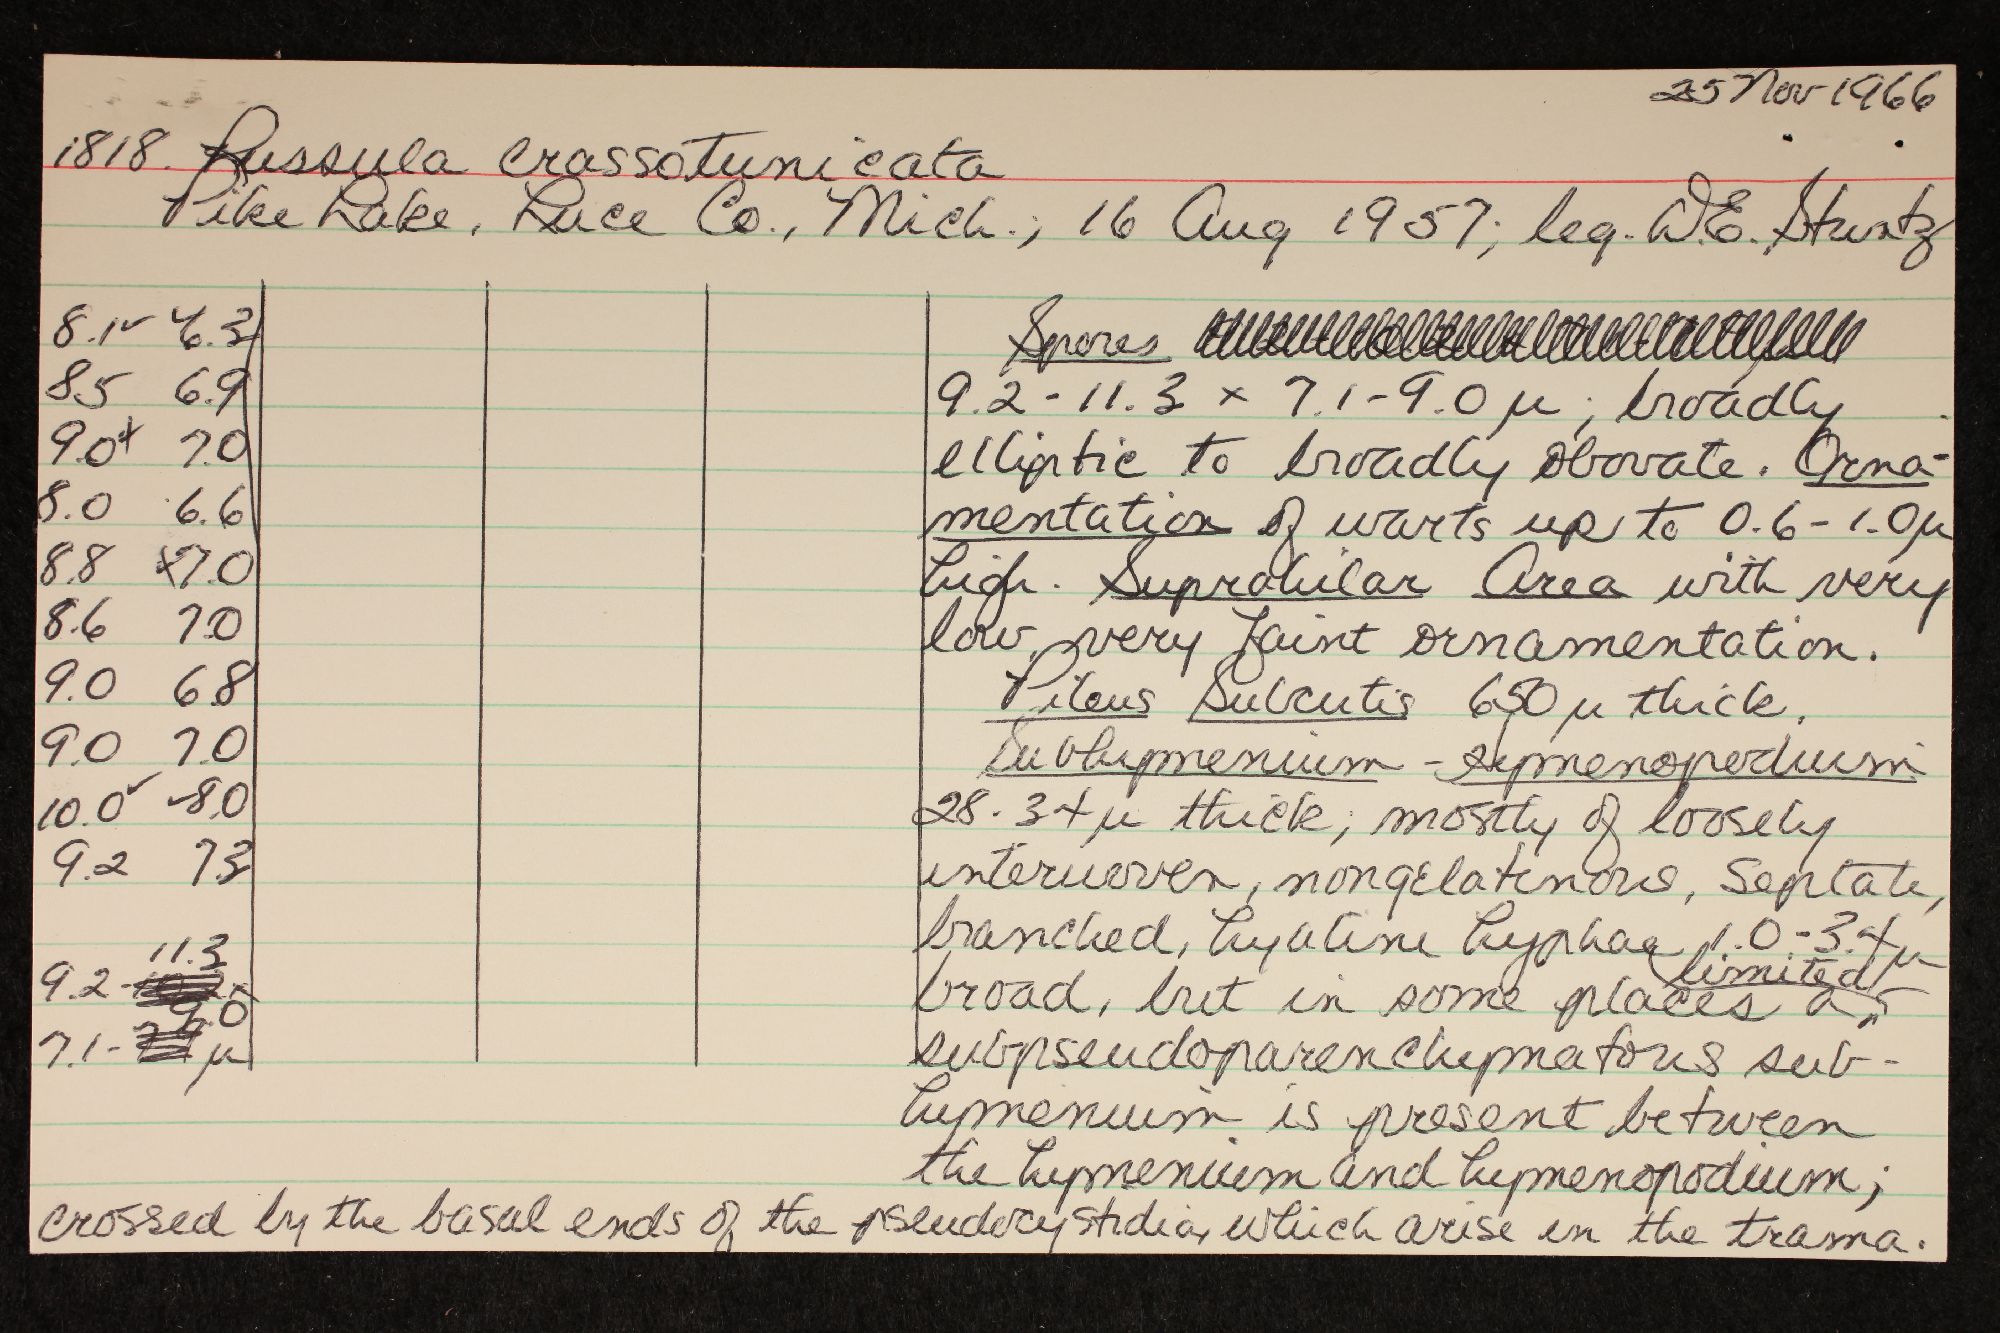 25 Nov 1966
1818. Russula crassotunicata
Pike Lake, Luce Co., Mich.; 16 Aug 1957; leg. D.E. Stuntz
8.1✓ 6.3
8.5 6.9
9.0x 7.0
8.0 6.6
8.8 x7.0
8.6 7.0
9.0 6.8
9.0 7.0
10.0✓ ✓8.0
9.2 7.3
11.3
9.2- x
9.0
7.1- µ
Spores
9.2-11.3 x 7.1-9.0 µ; broadly
elliptic to broadly obovate. Orna-
mentation of warts up to 0.6-1.0µ
high. Suprahilar Area with very
low, very faint ornamentation.
Pileus Subcutis 650 µ thick.
Subhymenium - hymenopodium
28-34 µ thick; mostly of loosely
interwoven, nongelatinous, septate,
branched, hyaline hyphae 1.0-3.4 µ
limited
broad, but in some places a
subpseudoparenchymatous sub-
hymenium is present between
the hymenium and hymenopodium;
crossed by the basal ends of the pseudocystidia, which arise in the trama.